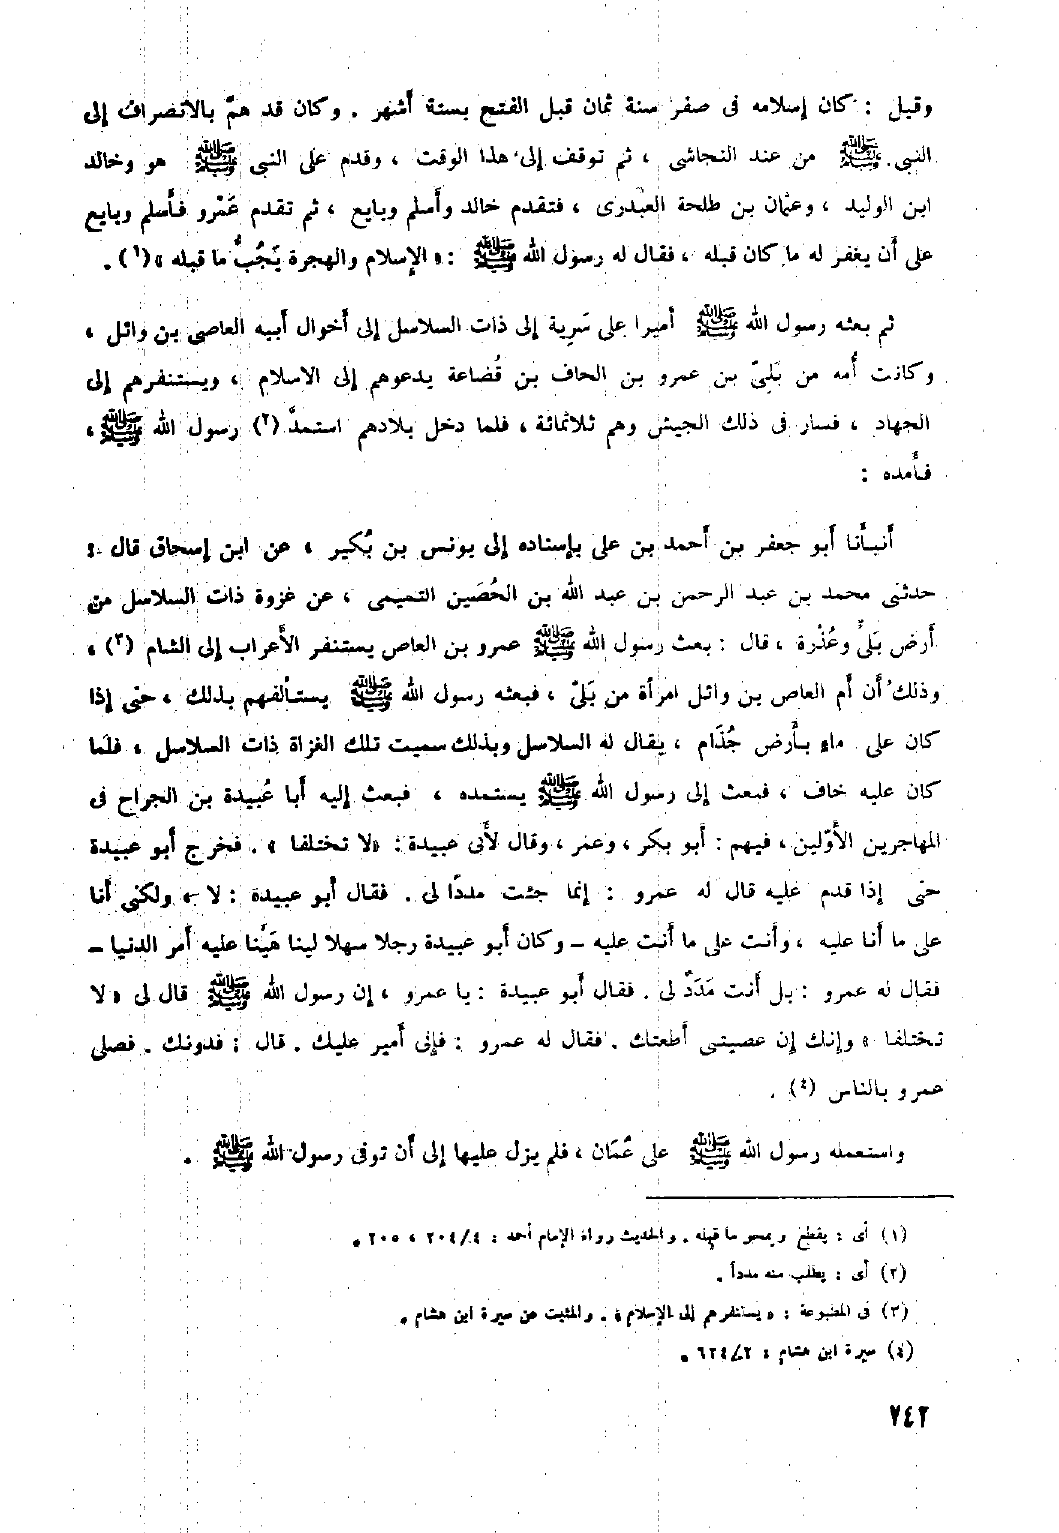 وقيل : كان إسلامه فى صفر سنة ثمان قبل الفتح بستة أشهر . وكان قد همّ بالانصراف إلى
النبى ﷺ من عند النجاشى ، ثم توقف إلى هذا الوقت ، وقدم على النبى ﷺ هو وخالد
ابن الوليد ، وعثمان بن طلحة العبدرى ، فتقدم خالد وأسلم وبايع ، ثم تقدم عَمْرو فأسلم وبايع
على أن يغفر له ما كان قبله ، فقال له رسول الله ﷺ : « الإسلام والهجرة يَجُبُّ ما قبله »(١) .
ثم بعثه رسول الله ﷺ أميرا على سَرِية إلى ذات السلاسل إلى أخوال أبيه العاصى بن وائل ،
وكانت أُمه من بَلِىّ بن عمرو بن الحاف بن قُضاعة يدعوهم إلى الاسلام ، ويستنفرهم إلى
الجهاد ، فسار فى ذلك الجيش وهم ثلاثمائة ، فلما دخل بلادهم استمدَّ (٢) رسول الله ﷺ ،
فأمده :
أنبأنا أبو جعفر بن أحمد بن على بإسناده إلى يونس بن بُكير ، عن ابن إسحاق قال :
حدثنى محمد بن عبد الرحمن بن عبد الله بن الحُصَين التميمى ، عن غزوة ذات السلاسل من
أرض بَلىٍّ وعُذْرة ، قال : بعث رسول الله ﷺ عمرو بن العاص يستنفر الأعراب إلى الشام (٣) ،
وذلك أن أم العاص بن وائل امرأة من بَلىّ ، فبعثه رسول الله ﷺ يستألفهم بذلك ، حتى إذا
كان على ماءٍ بأرض جُذَام ، يقال له السلاسل وبذلك سميت تلك الغزاة ذات السلاسل ، فلما
كان عليه خاف ، فبعث إلى رسول الله ﷺ يستمده ، فبعث إليه أبا عُبيدة بن الجراح فى
المهاجرين الأَوّلين ، فيهم : أبو بكر ، وعمر ، وقال لأبى عبيدة : «لا تختلفا » . فخرج أبو عبيدة
حتى إذا قدم عليه قال له عمرو : إنما جئت مددًا لى . فقال أبو عبيدة : لا ، ولكنى أنا
على ما أنا عليه ، وأنت على ما أنت عليه – وكان أبو عبيدة رجلا سهلا لينا هَيِّنا عليه أمر الدنيا –
فقال له عمرو : بل أنت مَدَدٌ لى . فقال أبو عبيدة : يا عمرو ، إن رسول الله ﷺ قال لى « لا
تختلفا » وإنك إن عصيتنى أطعتك . فقال له عمرو : فإنى أمير عليك . قال : فدونك . فصلى
عمرو بالناس (٤) .
واستعمله رسول الله ﷺ على عُمَان ، فلم يزل عليها إلى أن توفى رسول الله ﷺ .
(١) أى : يقطع ويمحو ما قبله . والحديث رواه الإمام أحمد : ٢٠٤/٤ ، ٢٠٥ .
(٢) أى : يطلب منه مدداً .
(٣) فى المطبوعة : « يستنفرهم إلى الإسلام » . والمثبت عن سيرة ابن هشام .
(٤) سيرة ابن هشام : ٦٢٤/٢ .
٧٤٢